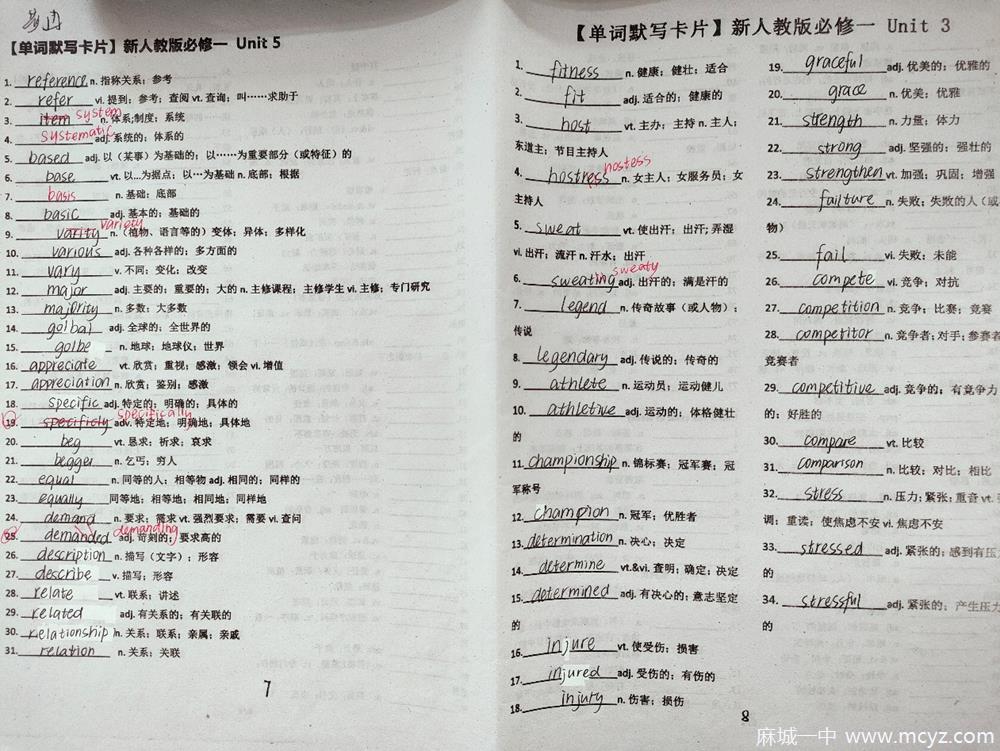 【单词默写卡片】新人教版必修一 Unit 5
1. reference n. 指称关系；参考
2. refer vi. 提到；参考；查阅 vt. 查询；叫……求助于
3. item system n. 体系；制度；系统
4. systematic adj. 系统的；体系的
5. based adj. 以（某事）为基础的；以……为重要部分（或特征）的
6. base vt. 以...为据点；以…为基础 n. 底部；根据
7. basis n. 基础；底部
8. basic adj. 基本的；基础的
9. varity variety n.（植物、语言等的）变体；异体；多样化
10. various adj. 各种各样的；多方面的
11. vary v. 不同；变化；改变
12. major adj. 主要的；重要的；大的 n. 主修课程；主修学生 vi. 主修；专门研究
13. majority n. 多数；大多数
14. golbal adj. 全球的；全世界的
15. golbe n. 地球；地球仪；世界
16. appreciate vt. 欣赏；重视；感激；领会 vi. 增值
17. appreciation n. 欣赏；鉴别；感激
18. specific adj. 特定的；明确的；具体的
19. specificly specifically adv. 特定地；明确地；具体地
20. beg vt. 恳求；祈求；哀求
21. begger n. 乞丐；穷人
22. equal n. 同等的人；相等物 adj. 相同的；同样的
23. equally 同等地；相等地；相同地；同样地
24. demand n. 要求；需求 vt. 强烈要求；需要 vi. 查问
25. demanded demanding adj. 苛刻的；要求高的
26. description n. 描写（文字）；形容
27. describe v. 描写；形容
28. relate vt. 联系；讲述
29. related adj. 有关系的；有关联的
30. relationship n. 关系；联系；亲属；亲戚
31. relation n. 关系；关联
7
【单词默写卡片】新人教版必修一 Unit 3
1. fitness n. 健康；健壮；适合
2. fit adj. 适合的；健康的
3. host vt. 主办；主持 n. 主人；
东道主；节目主持人
4. hostress hostess n. 女主人；女服务员；女
主持人
5. sweat vt. 使出汗；出汗；弄湿
vi. 出汗；流汗 n. 汗水；出汗
6. sweating sweaty adj. 出汗的；满是汗的
7. legend n. 传奇故事（或人物）；
传说
8. legendary adj. 传说的；传奇的
9. athlete n. 运动员；运动健儿
10. athletive adj. 运动的；体格健壮
的
11. championship n. 锦标赛；冠军赛；冠
军称号
12. champion n. 冠军；优胜者
13. determination n. 决心；决定
14. determine vt.&vi. 查明；确定；决定
15. determined adj. 有决心的；意志坚定
的
16. injure vt. 使受伤；损害
17. injured adj. 受伤的；有伤的
18. injury n. 伤害；损伤
19. graceful adj. 优美的；优雅的
20. grace n. 优美；优雅
21. strength n. 力量；体力
22. strong adj. 坚强的；强壮的
23. strengthen vt. 加强；巩固；增强
24. failture n. 失败；失败的人（或
物）
25. fail vi. 失败；未能
26. compete vi. 竞争；对抗
27. competition n. 竞争；比赛；竞赛
28. competitor n. 竞争者；对手；参赛者
竞赛者
29. competitive adj. 竞争的；有竞争力
的；好胜的
30. compare vt. 比较
31. comparison n. 比较；对比；相比
32. stress n. 压力；紧张；重音 vt.
调；重读；使焦虑不安 vi. 焦虑不安
33. stressed adj. 紧张的；感到有压
的
34. stressful adj. 紧张的；产生压力
的
8
麻城一中 www.mcyz.com